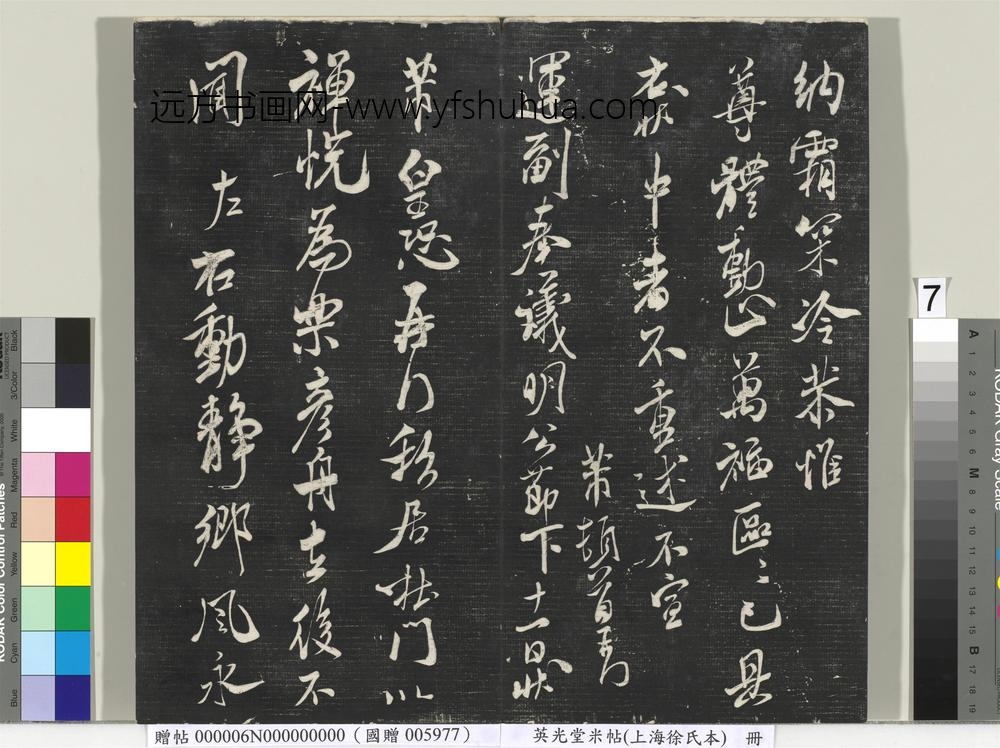 納霜深冷恭惟
尊體動止萬福區〻已具
右狀中者不重述不宣
芾頓首再
運副奉議明公節下十一日狀
芾皇恐再 移居杜門以
禪悅為樂彥舟去後不
聞左右動靜鄉風永
远方书画网-www.yfshuhua.com
7
贈帖 000006N000000000（國贈 005977）
英光堂米帖(上海徐氏本) 冊
KODAK Color Control Patches
Blue Cyan Green Yellow Red Magenta White 3/Color Black
KODAK Gray Scale
A 1 2 3 4 5 6 M 8 9 10 11 12 13 14 15 B 17 18 19